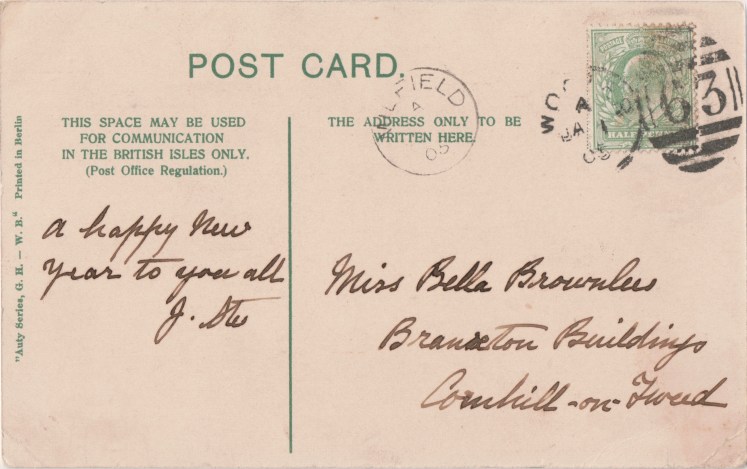 POST CARD.
THIS SPACE MAY BE USED
FOR COMMUNICATION
IN THE BRITISH ISLES ONLY.
(Post Office Regulation.)
THE ADDRESS ONLY TO BE
WRITTEN HERE.
A
05
WOO
A
JA 1
05
63
HALFPENNY
"Auty Series, G. H. — W. B." Printed in Berlin
A happy New
Year to you all
J.
Miss Bella Brownlees
Branxton Buildings
Cornhill-on-Tweed